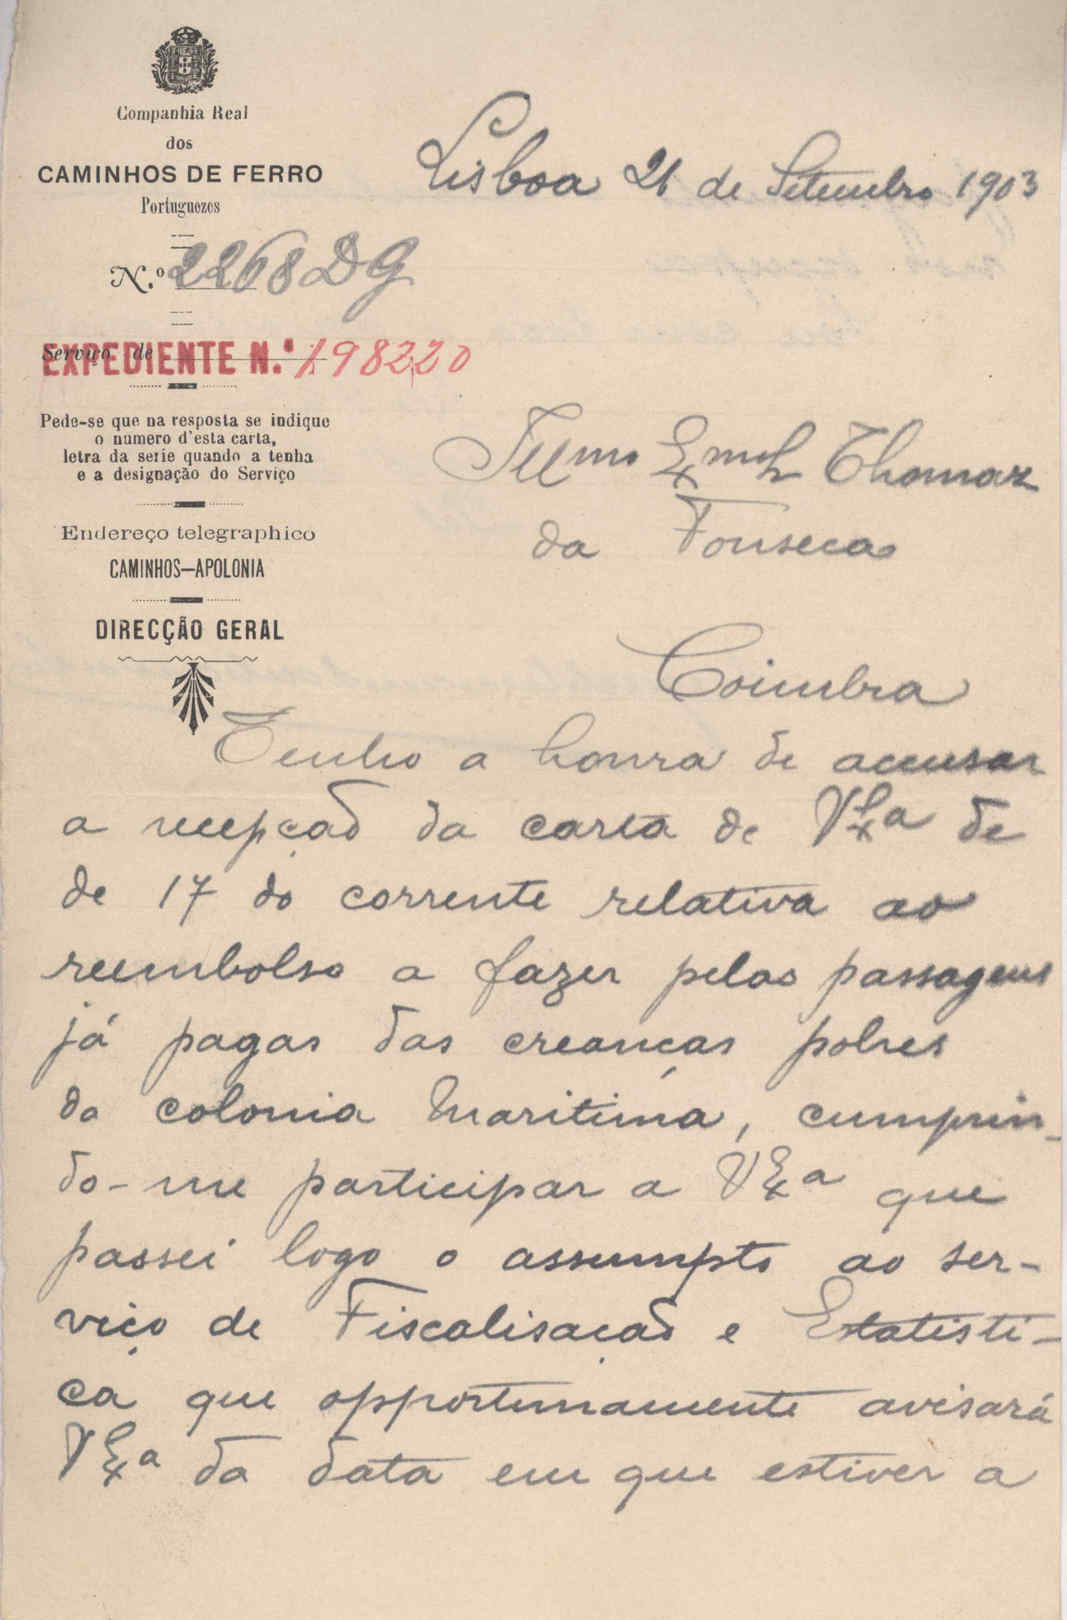 Companhia Real
dos
CAMINHOS DE FERRO
Portuguezes
N.º 2268 DG
Serviço de
EXPEDIENTE N.º 198220
Pede-se que na resposta se indique
o numero d'esta carta,
letra da serie quando a tenha
e a designação do Serviço
Endereço telegraphico
CAMINHOS—APOLONIA
DIRECÇÃO GERAL
Lisboa 21 de Setembro 1903
Illmo Exmo Sr Thomaz
da Fonseca
Coimbra
Tenho a honra de accusar
a recepção da carta de VExa de
de 17 do corrente relativa ao
reembolso a fazer pelas passagens
já pagas das creanças pobres
da colonia Maritima, cumprin-
do-me participar a VExa que
passei logo o assumpto ao ser-
viço de Fiscalisação e Estatisti-
ca que opportunamente avisará
VExa da data em que estiver a